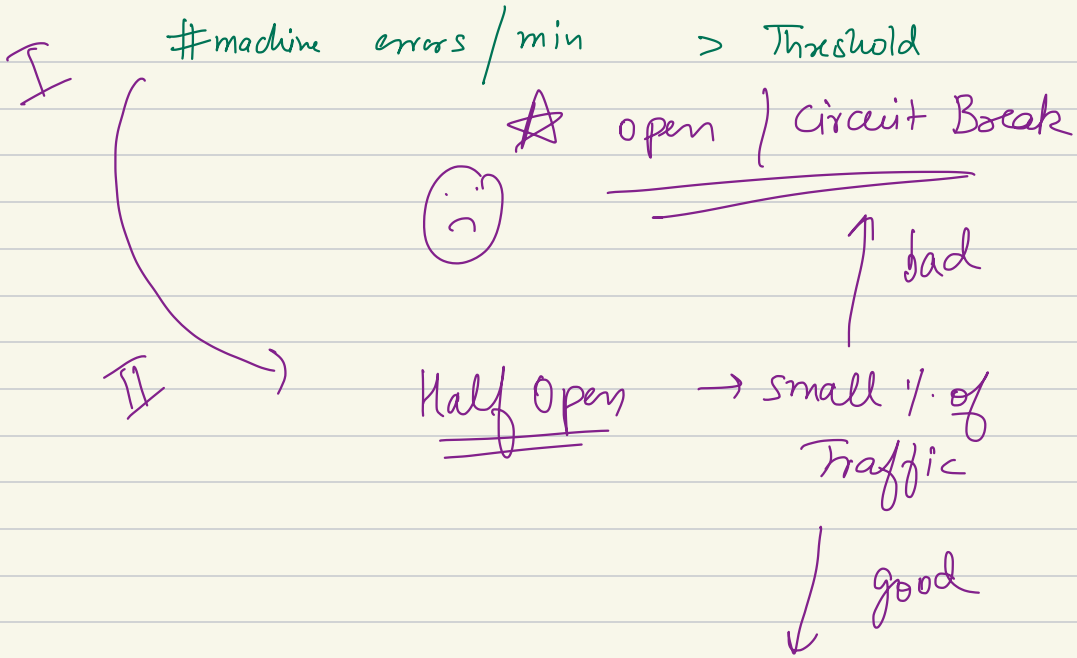 I #machine errors/min > Threshold
☆ open | Circuit Break
bad
II Half Open → small % of
Traffic
good